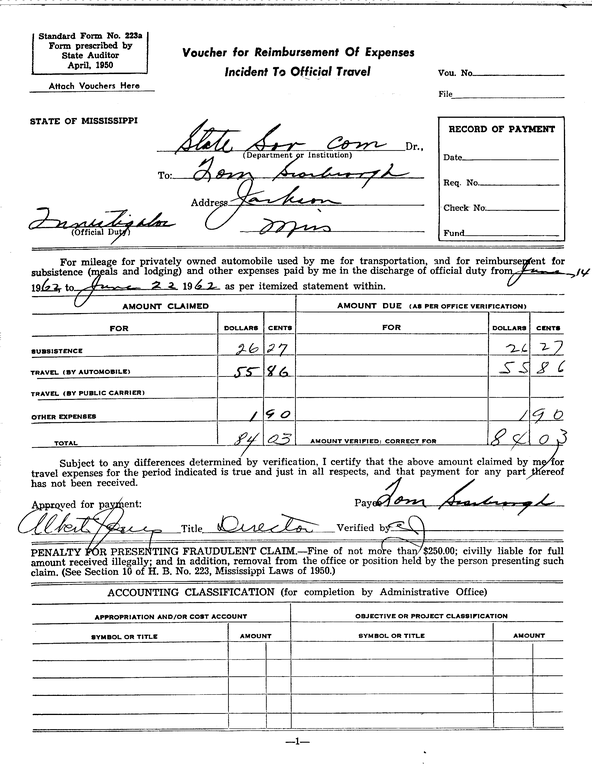 Standard Form No. 223a
Form prescribed by
State Auditor
April, 1950
Attach Vouchers Here
Voucher for Reimbursement Of Expenses
Incident To Official Travel
Vou. No.
File
STATE OF MISSISSIPPI
State Sov Com Dr.,
(Department or Institution)
To: Tom Scarbrough
Address Jackson
Miss
Investigator
(Official Duty)
RECORD OF PAYMENT
Date
Req. No.
Check No.
Fund
For mileage for privately owned automobile used by me for transportation, and for reimbursement for
subsistence (meals and lodging) and other expenses paid by me in the discharge of official duty from June 14
1962 to June 22 1962 as per itemized statement within.
AMOUNT CLAIMED AMOUNT DUE (AS PER OFFICE VERIFICATION)
FOR DOLLARS CENTS FOR DOLLARS CENTS
SUBSISTENCE 26 27 26 27
TRAVEL (BY AUTOMOBILE) 55 86 55 86
TRAVEL (BY PUBLIC CARRIER)
OTHER EXPENSES 1 90 1 90
TOTAL 84 03 AMOUNT VERIFIED; CORRECT FOR 84 03
Subject to any differences determined by verification, I certify that the above amount claimed by me for
travel expenses for the period indicated is true and just in all respects, and that payment for any part thereof
has not been received.
Approved for payment: Payee Tom Scarbrough
Albert Jones Title Director Verified by
PENALTY FOR PRESENTING FRAUDULENT CLAIM.—Fine of not more than $250.00; civilly liable for full
amount received illegally; and in addition, removal from the office or position held by the person presenting such
claim. (See Section 10 of H. B. No. 223, Mississippi Laws of 1950.)
ACCOUNTING CLASSIFICATION (for completion by Administrative Office)
APPROPRIATION AND/OR COST ACCOUNT OBJECTIVE OR PROJECT CLASSIFICATION
SYMBOL OR TITLE AMOUNT SYMBOL OR TITLE AMOUNT
—1—